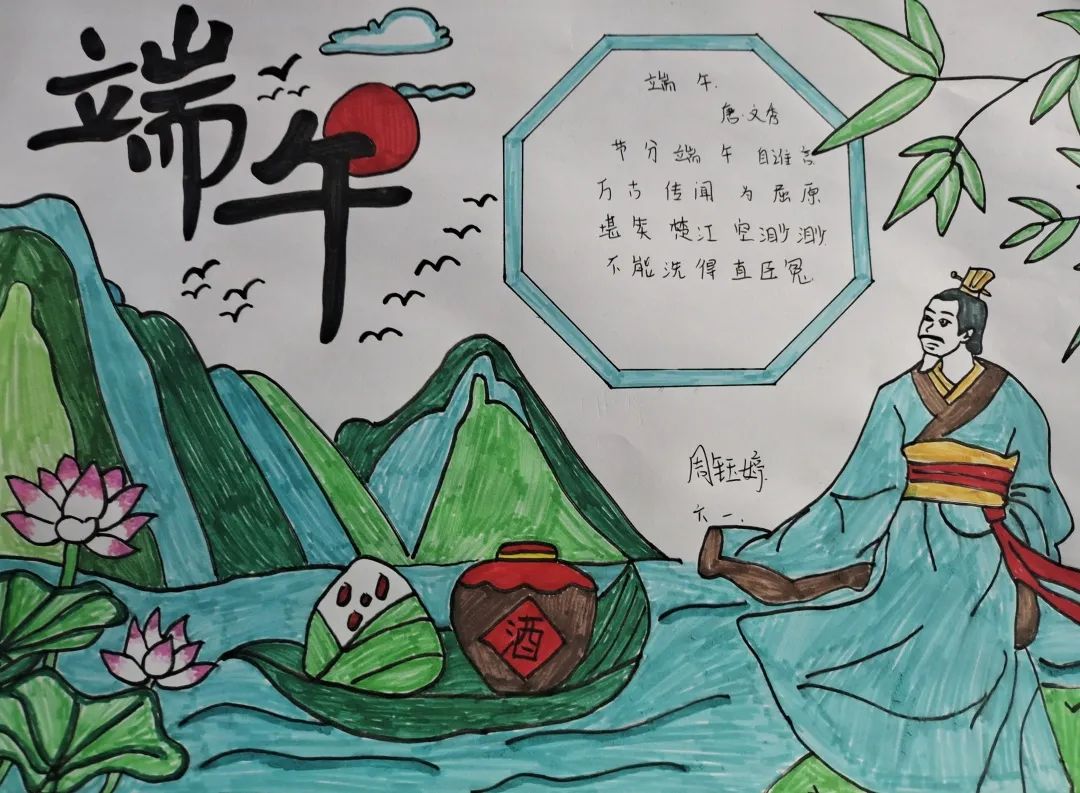 端午
端午
唐·文秀
节分端午自谁言
万古传闻为屈原
堪笑楚江空渺渺
不能洗得直臣冤
周钰婷
六一.
酒